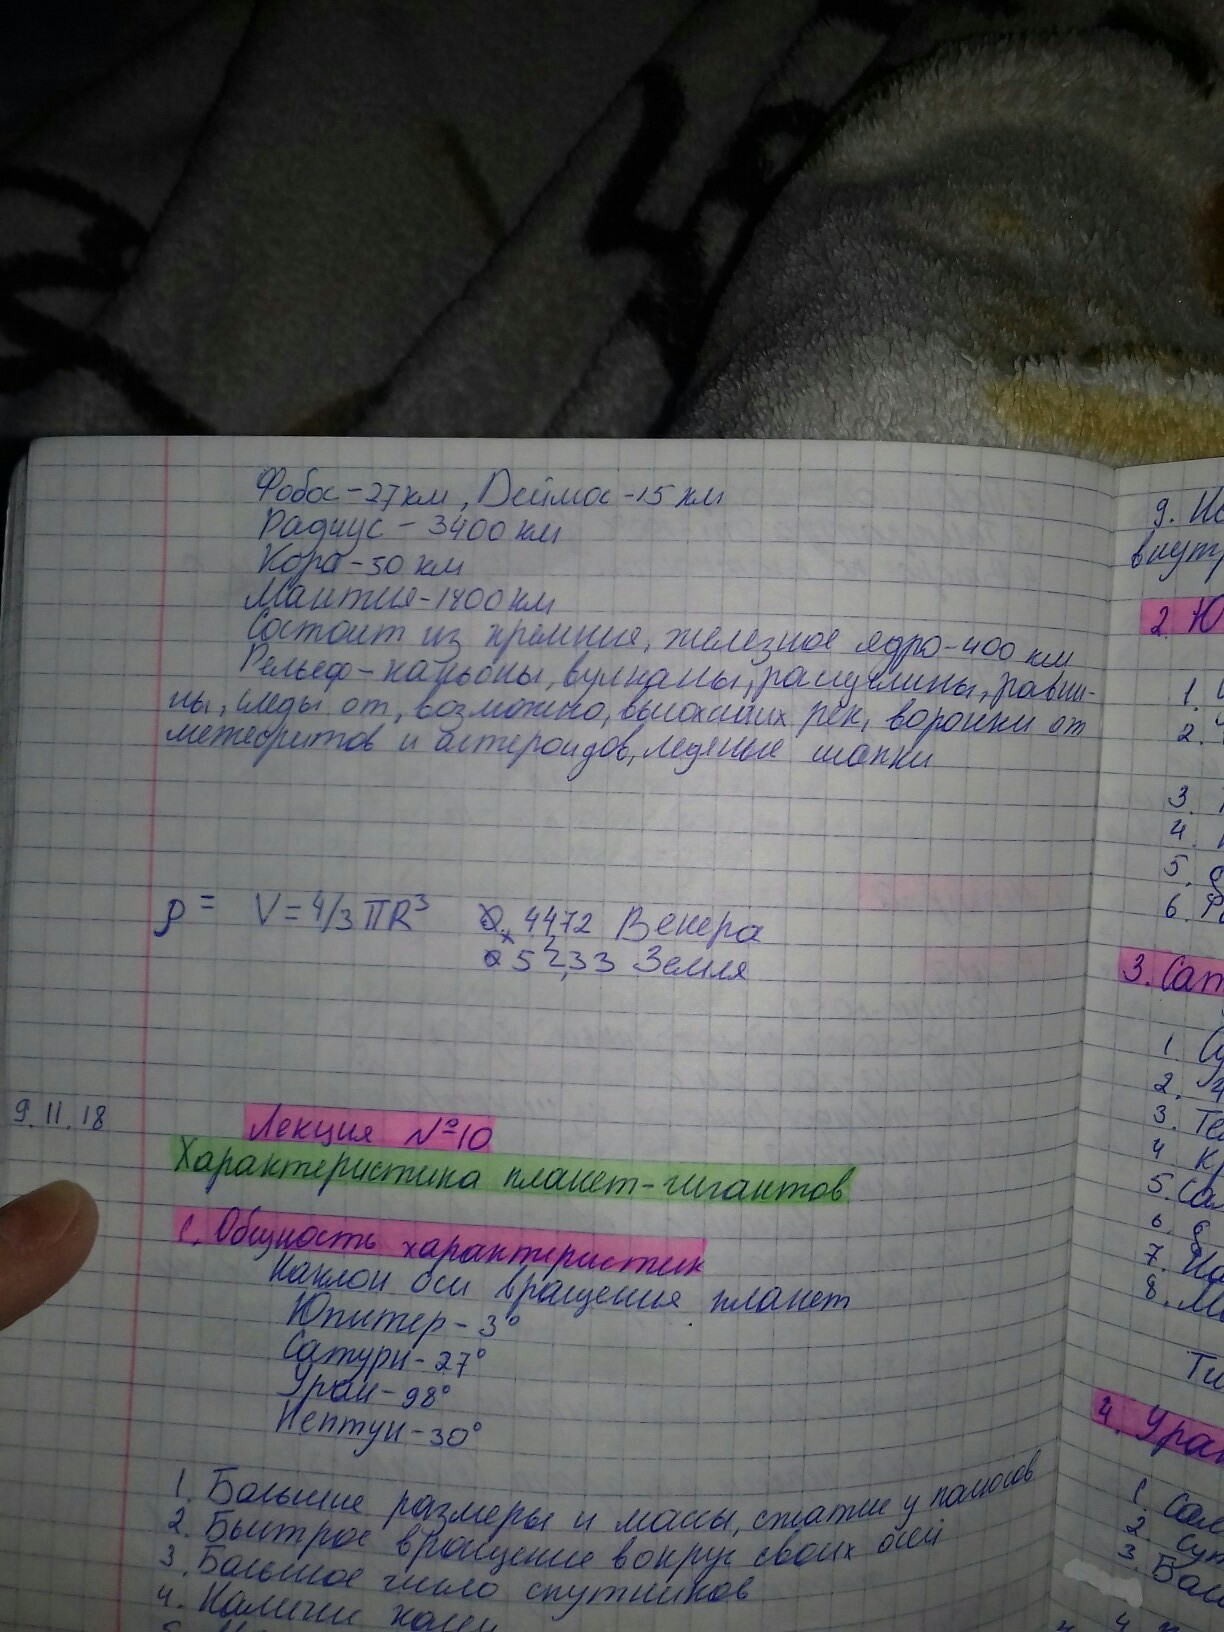 Фобос-27км, Деймос-15 км
Радиус - 3400 км
Кора-50 км
Мантия-1800км
Состоит из кремния, железное ядро-400 км
Рельеф-каньоны, вулканы, расщелины, равни-
ны, следы от, возможно, высохших рек, воронки от
метеоритов и астероидов, ледяные шапки
ρ= V=4/3 πR³ 4472 Венера
5233 Земля
9.11.18
Лекция №10
Характеристика планет-гигантов
1. Общность характеристик
Наклон оси вращения планет
Юпитер-3°
Сатурн-27°
Уран-98°
Нептун-30°
1. Большие размеры и массы, сжатие у полюсов
2. Быстрое вращение вокруг своих осей
3. Большое число спутников
4. Наличие колец
9.
внутр
2. Ю
1.
2.
3.
4.
5.
6.
3. Сат
1.
2.
3. Те
4
5. Сам
6
7. На
8.
Ти
4. Уран
1.
2.
3. Бол
4